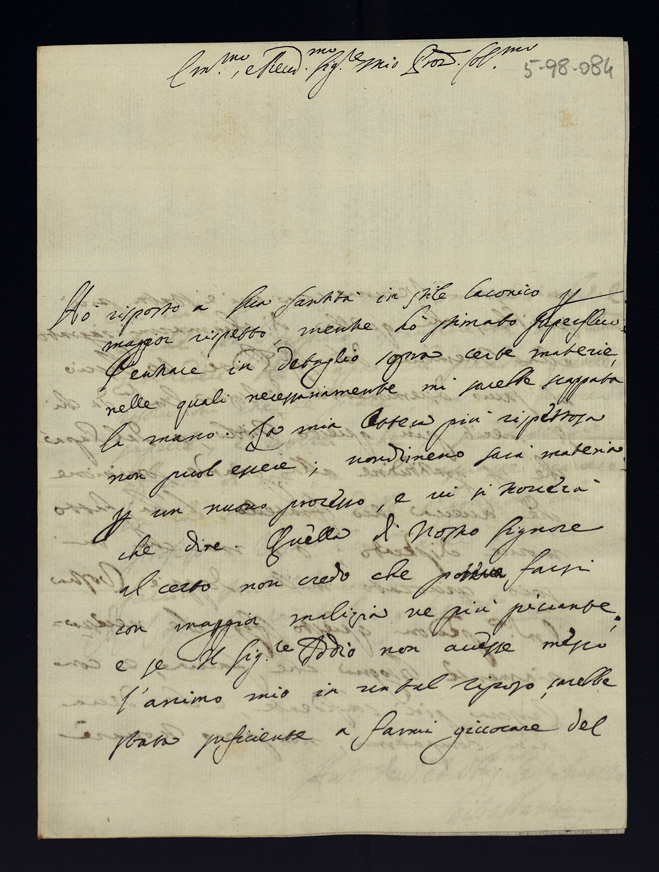 Em.mo, e Reud.mo Sig.re mio Pron. Col.mo
5-98-084
Hò risposto a Sua Santità in stile laconico p
maggior rispetto, mentre hò stimato superfluo
l'entrare in dettaglio sopra certe materie,
nelle quali necessariamente mi sarebbe scappata
la mano. La mia lettera più rispettosa
non puol essere; nondimeno sarà materia
p un nuouo processo, e ui si trouerà
che dire. Quella di Nostro Signore
al certo non credo che farsi
con maggior malizia ne più piccante.
e se il Sig.re Iddio non auesse messo
l'animo mio in un tal riposo, sarebbe
stata suficiente a farmi giocare del